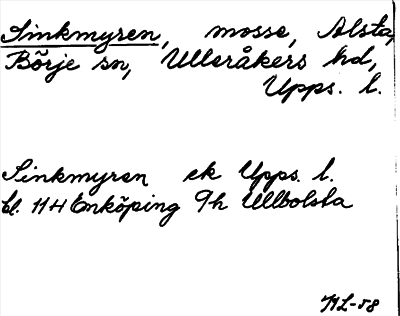 Sinkmyren, mosse, Alsta,
Börje sn, Ulleråkers hd,
Upps. l.
Sinkmyren ek Upps. l.
bl. 11H Enköping 9h Ullbolsta
HL-58